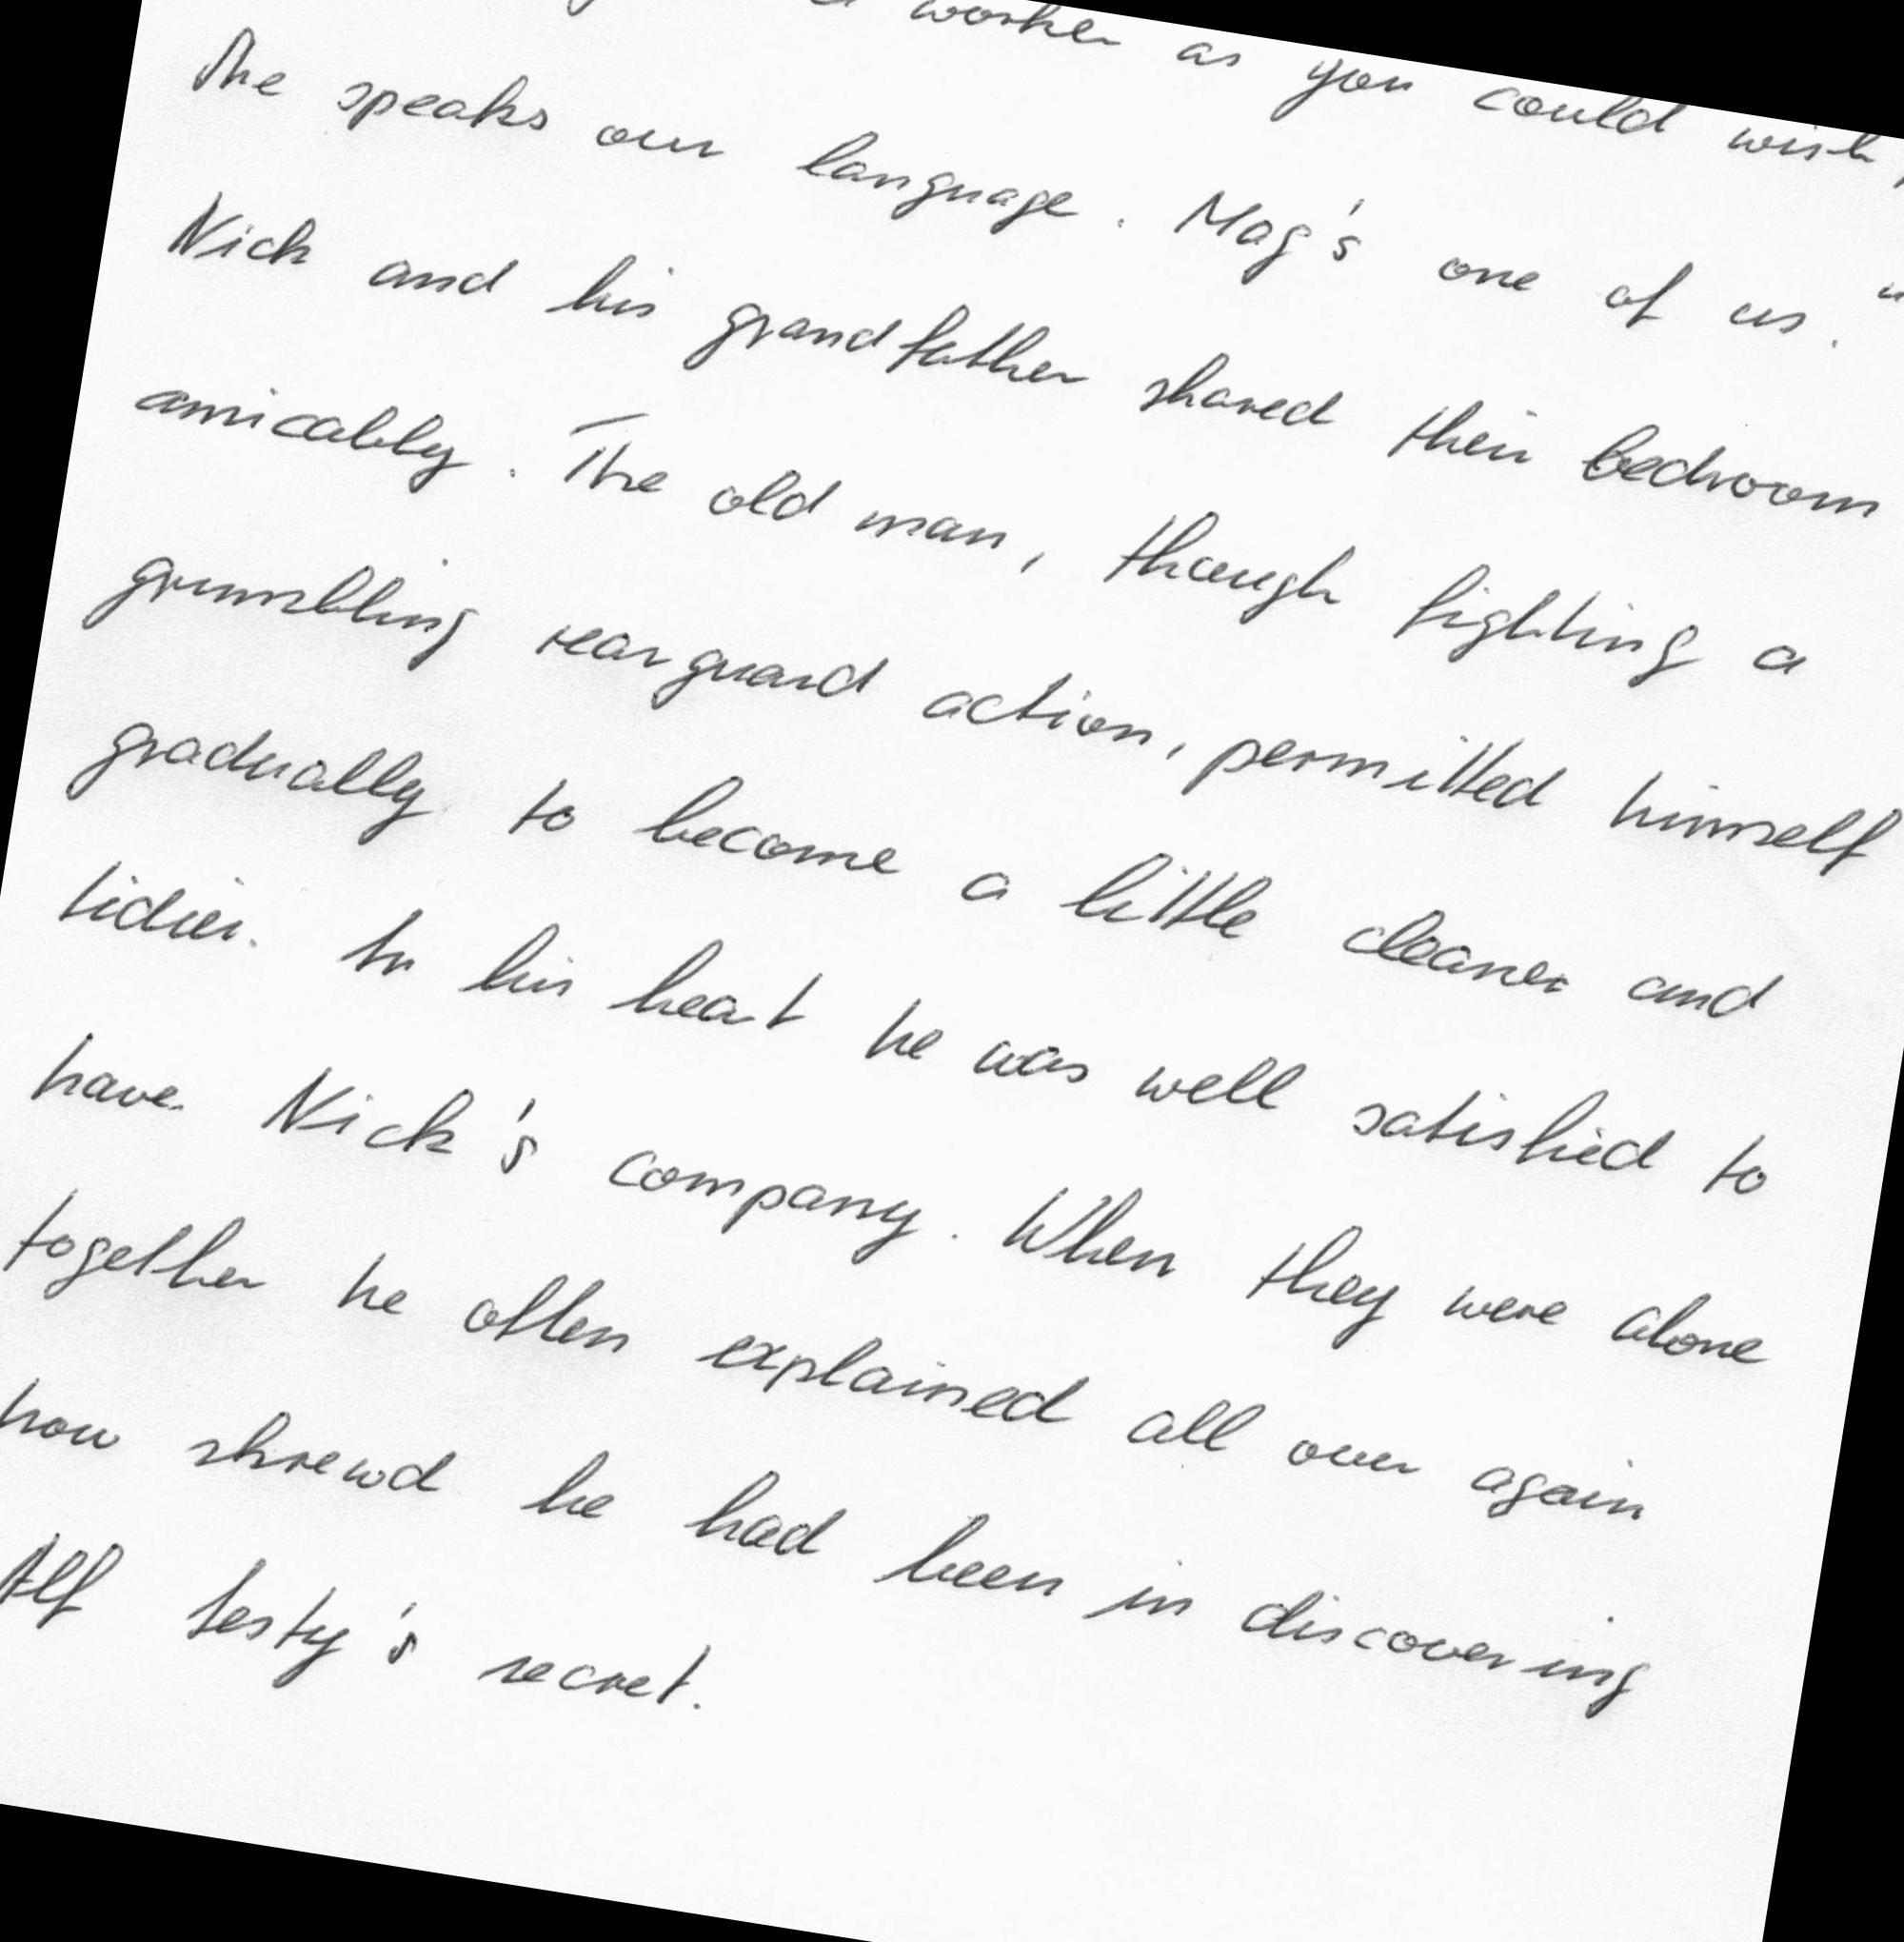 worker as you could wish,
She speaks our language. Mag's one of us."
Nick and his grandfather shared their bedroom
amicably. The old man, though fighting a
grumbling rearguard action, permitted himself
gradually to become a little cleaner and
tidier. In his heart he was well satisfied to
have Nick's company. When they were alone
together he often explained all over again
how shrewd he had been in discovering
Alf Testy's secret.